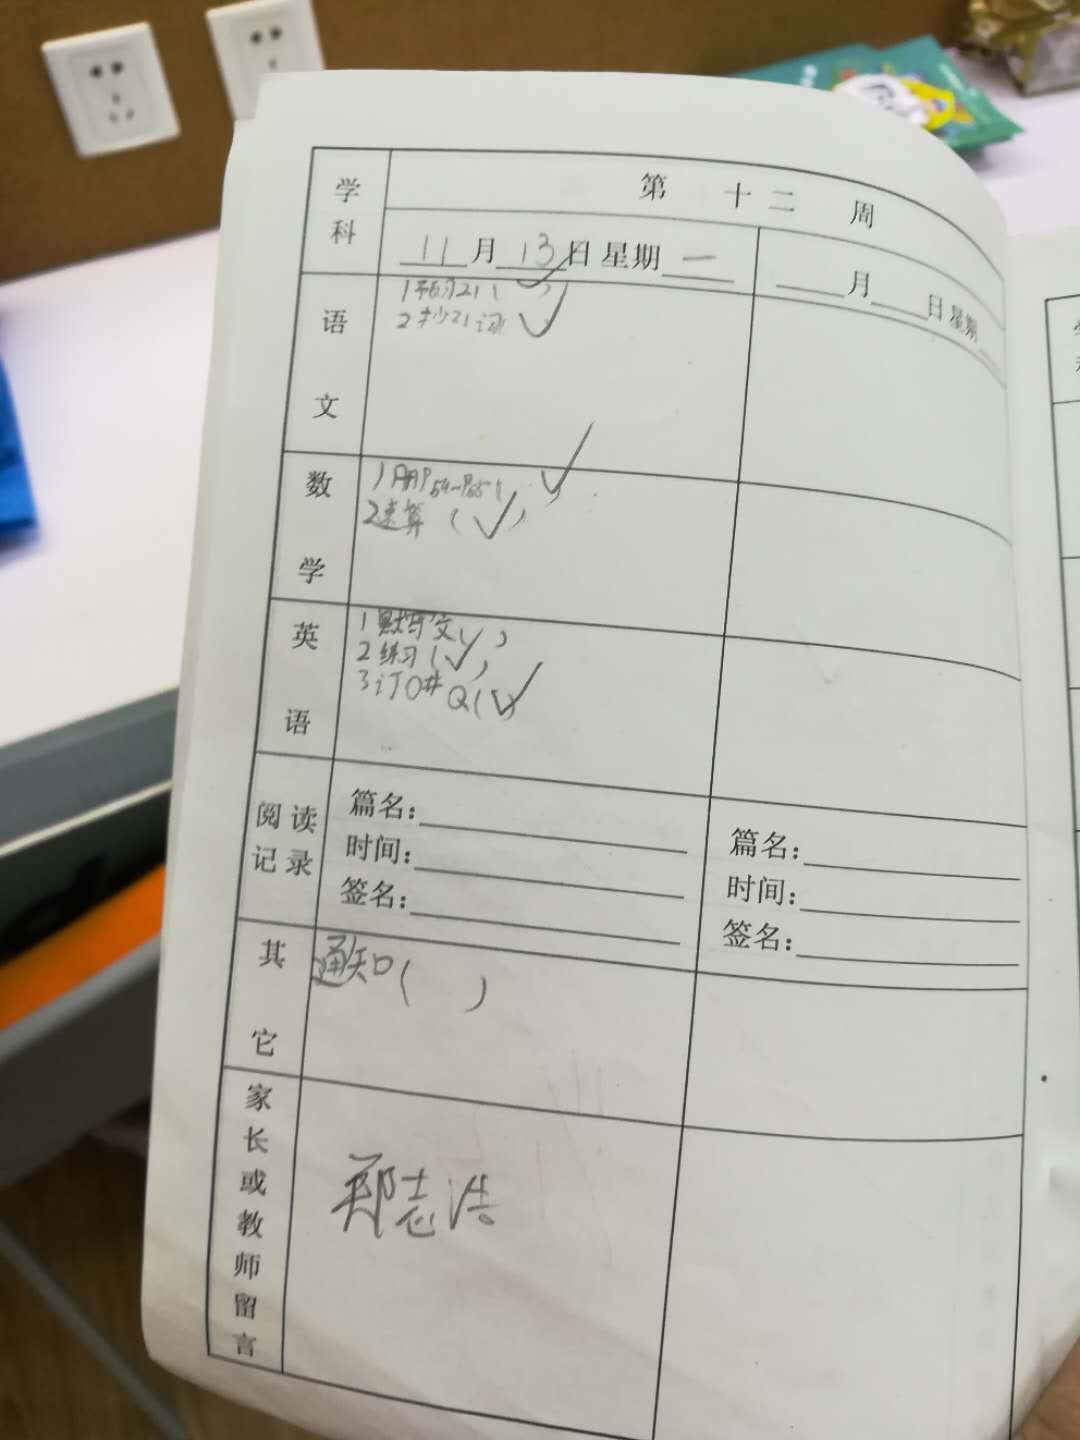 学科
第 十二 周
11月13日 星期一
月 日 星期
语文
1预习21( )
2抄21词
数学
1册P54~P55( )
2速算( )
英语
1默写文( )
2练习( )
3订0# Q( )
阅读记录
篇名:
时间:
签名:
篇名:
时间:
签名:
其它
通知( )
家长或教师留言
郑志浩